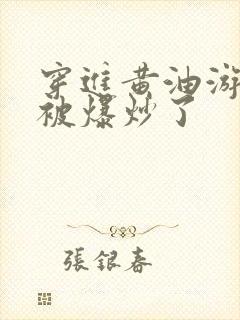 穿進黃油游
被爆炒了
張銀春